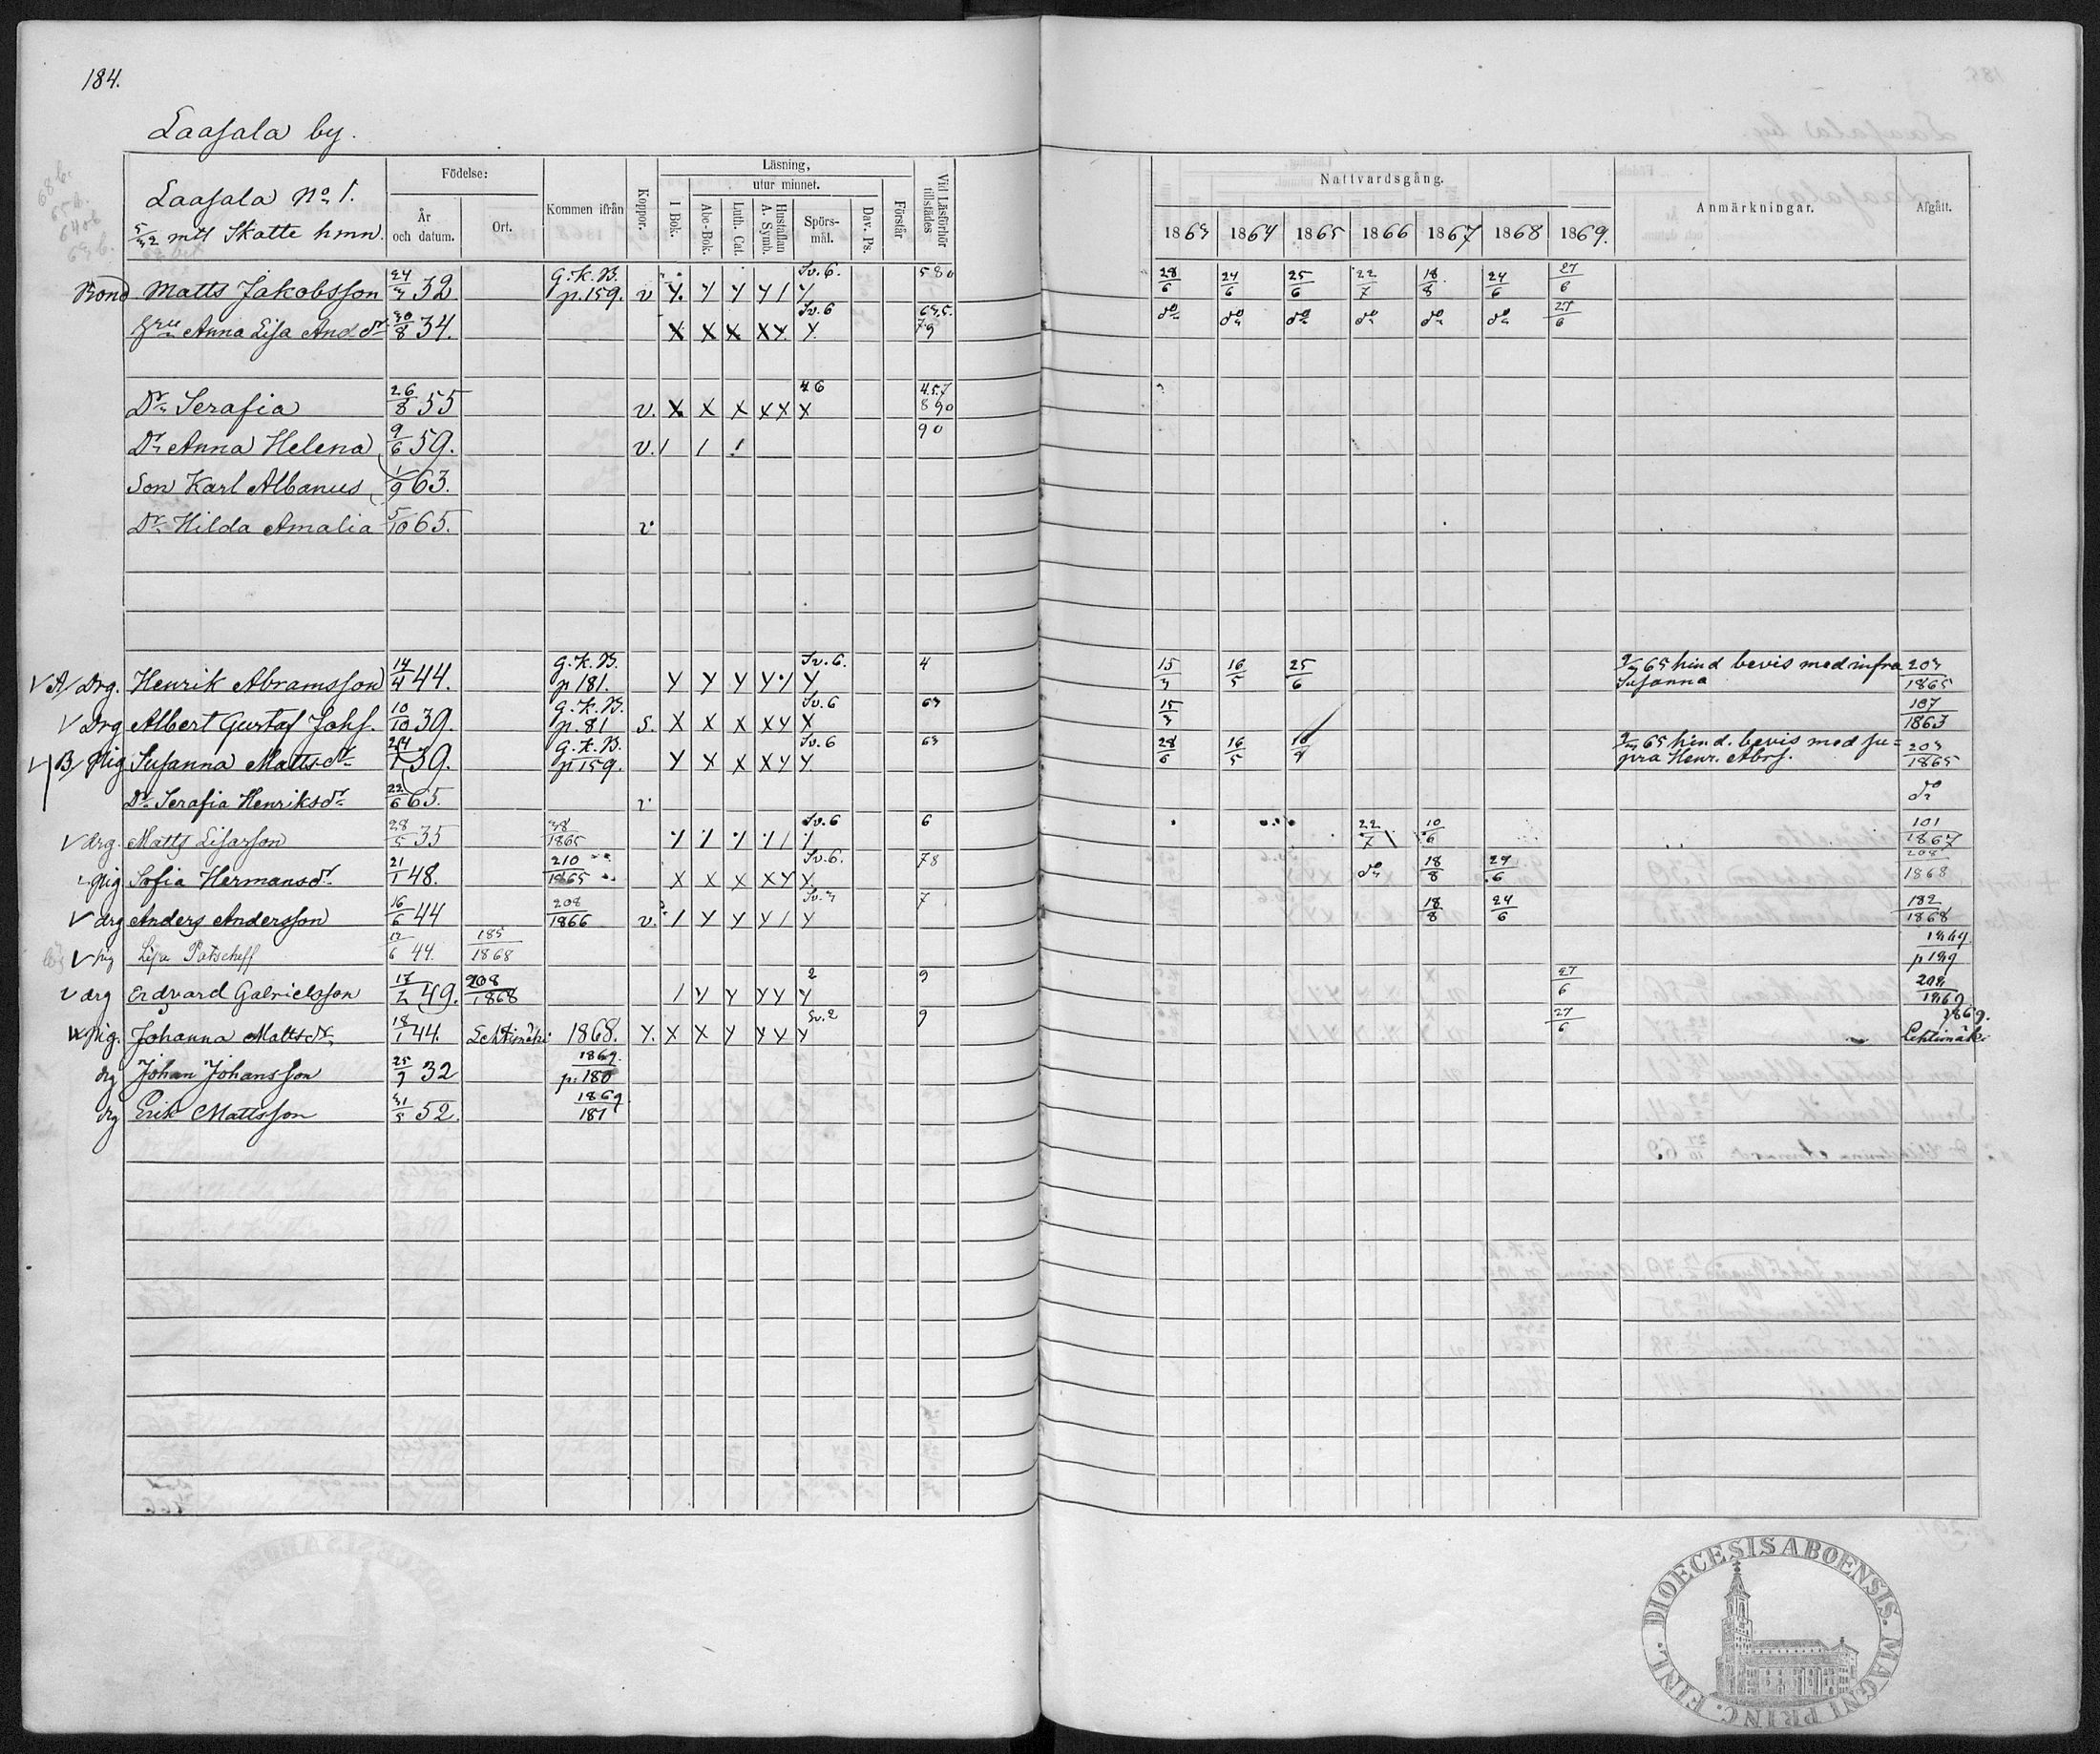 184.
Laasala by.
Laasala No 1.
5/32 mtl Skatte hmn.
Födelse:
År och datum.
Ort.
Kommen ifrån
Koppor.
Läsning,
I Bok.
utur minnet.
Abc-Bok.
Luth. Cat.
Hustaflan A. Symb.
Spörs-mål.
Dav. Ps.
Förstår
Vid Läsförhör tillstädes
Nattvardsgång.
1863 1864 1865 1866 1867 1868 1869.
Anmärkningar.
Afgått.
Bond Matts Jakobsson 24/3 32 G.K.B. p.159. v Y Y Y Y / Y Sv.6. 580 28/6 24/6 25/6 22/7 18/8 24/6 27/6
Hru Anna Lisa And.dr 30/8 34. X X X X Y Y Sv.6 63,5. 79 do do do do do do 27/6
Dr Serafia 26/8 55 v. X X X X X X 46 457 890
Dr Anna Helena 9/6 59. v. / / / 90
Son Karl Albanus 1/9 63.
Dr Hilda Amalia 5/10 65. v
V A/ Drg. Henrik Abramsson 14/4 44. G.K.B. p 181. Y Y Y Y / Y Sv.6. 4 15/3 16/5 25/6 9/7 65 hind bevis med infra Susanna 203/1865
V Drg Albert Gustaf Johs. 10/10 39. G.K.B. p.81 S. X X X X Y X Sv.6 63 15/3 107/1863
V B/ Pig Susanna Mattsdr 24/1 39. G.K.B. p 159. Y Y X X Y Y Sv.6 63 28/6 16/5 9/7 65 hind. bevis med su=pra Henr. Abrs. 203/1865
Dr Serafia Henriksdr 22/6 65. v do
V drg. Matts Lisasson 28/5 35 38/1865 Sv.6 6 22/7 10/6 101/1867
Pig Sofia Hermansdr 21/1 48. 210/1865 X X X X Y Y Sv.6. 78 do 18/8 24/6 208/1868
V drg Anders Andersson 16/6 44 208/1866 v. / Y Y Y / Y Sv.3 7 18/8 24/6 182/1868
V pig Lisa Patscheff 44. 185/1868 1869. p 189
V drg Erdvard Gabrielsson 17/2 49. 208/1868 / Y Y Y Y Y 2 9 27/6 208/1869
V Pig. Johanna Mattsdr 18/1 44. Lehtimäki 1868. Y. X X Y Y Y Y Sv.2 9 27/6 1869. Lehtimäki
drg Johan Johansson 25/7 32 1869. p. 180
drg Erik Mattsson 31/5 52. 1869/181
DIOECESIS ABOENSIS. MAGNI PRINC. FINL.